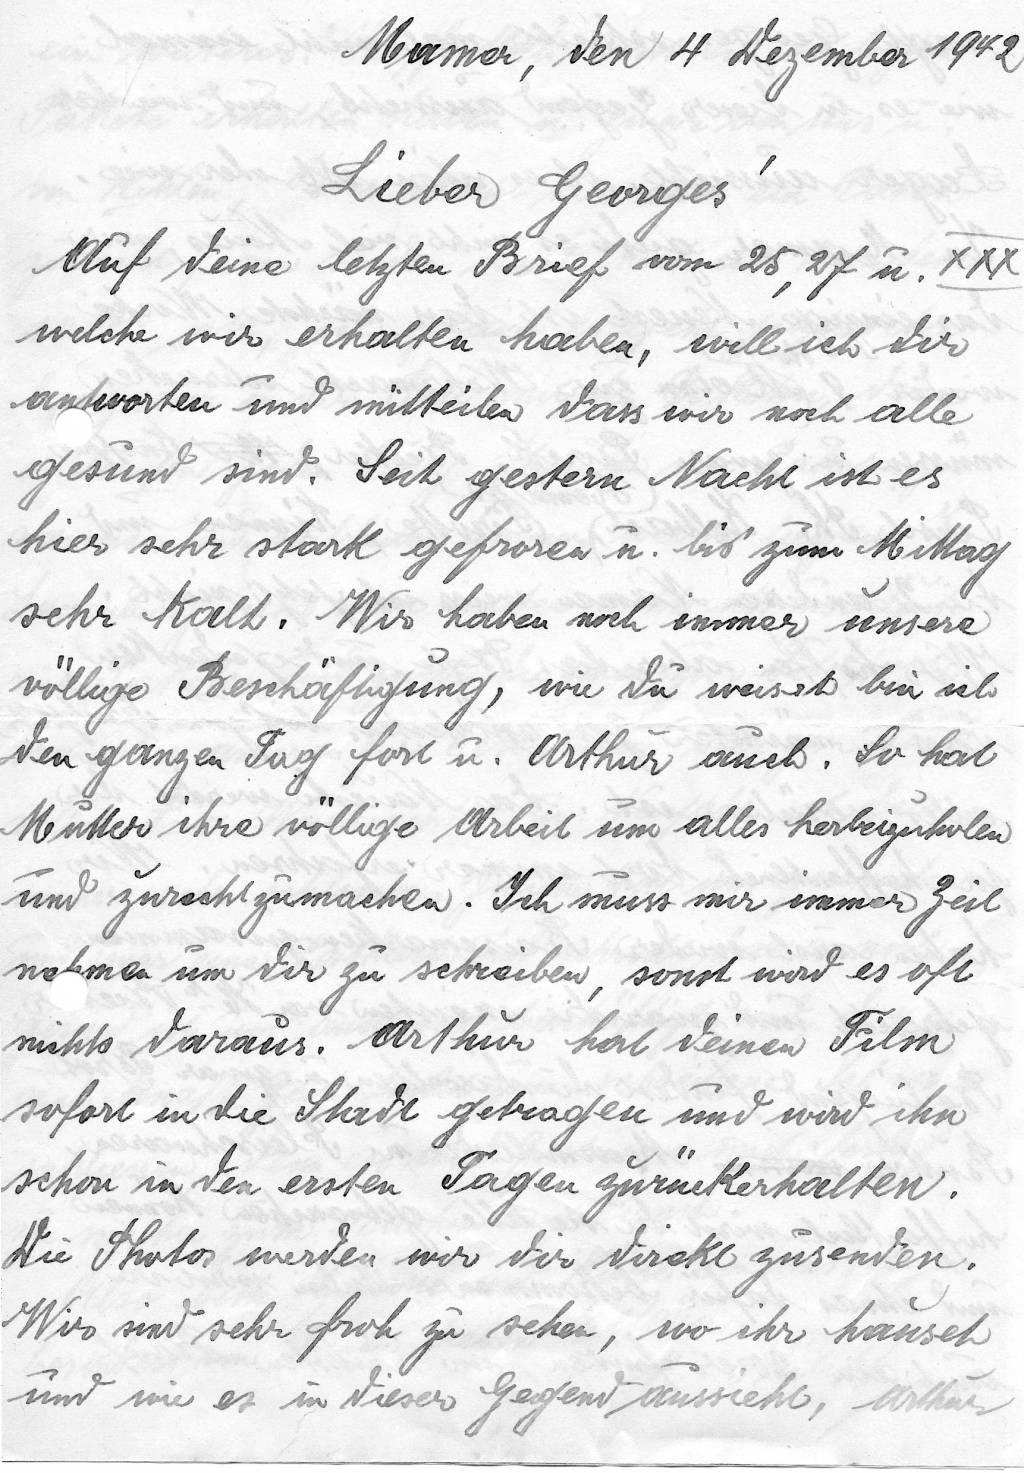 Mamer, den 4 Dezember 1942
Lieber Georges!
Auf deine letzten Brief vom 25, 27 u. XXX
welche wir erhalten haben, will ich dir
antworten und mitteilen dass wir noch alle
gesund sind. Seit gestern Nacht ist es
hier sehr stark gefroren u. bis zum Mittag
sehr kalt. Wir haben noch immer unsere
völlige Beschäftigung, wie du weisst bin ich
den ganzen Tag fort u. Arthur auch. So hat
Mutter ihre völlige Arbeit um alles herbeizuholen
und zurechtzumachen. Ich muss mir immer Zeit
nehmen um dir zu schreiben, sonst wird es oft
nichts daraus. Arthur hat deinen Film
sofort in die Stadt getragen und wird ihn
schon in den ersten Tagen zurückerhalten.
Die Photos werden wir dir direkt zusenden.
Wir sind sehr froh zu sehen, wo ihr hauset
und wie es in dieser Gegend aussieht, Arthur